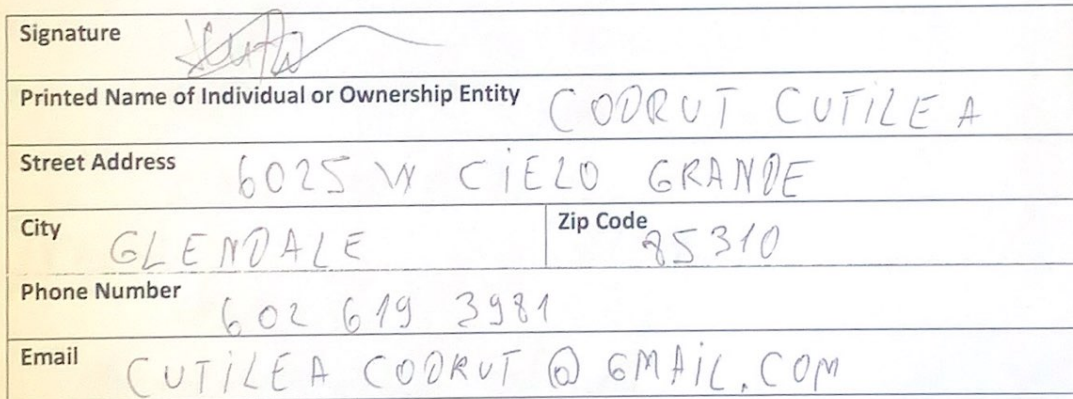 Signature
Printed Name of Individual or Ownership Entity CODRUT CUTiLEA
Street Address 6025 W CiELO GRANDE
City GLENDALE Zip Code 85310
Phone Number 602 619 3981
Email CUTiLEA CODRUT @ GMAiL.COM